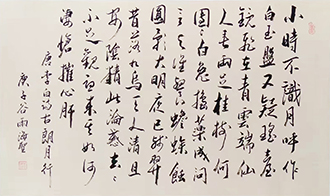 小時不識月呼作
白玉盤又疑瑤臺
鏡飛在青雲端仙
人垂兩足桂樹何
團團白兔搗藥成問
言與誰餐蟾蜍蝕
圓影大明夜已殘羿
昔落九烏天人清且
安陰精此淪惑去去
不足觀憂來其如何
悽愴摧心肝
唐李白詩古朗月行
庚子谷雨